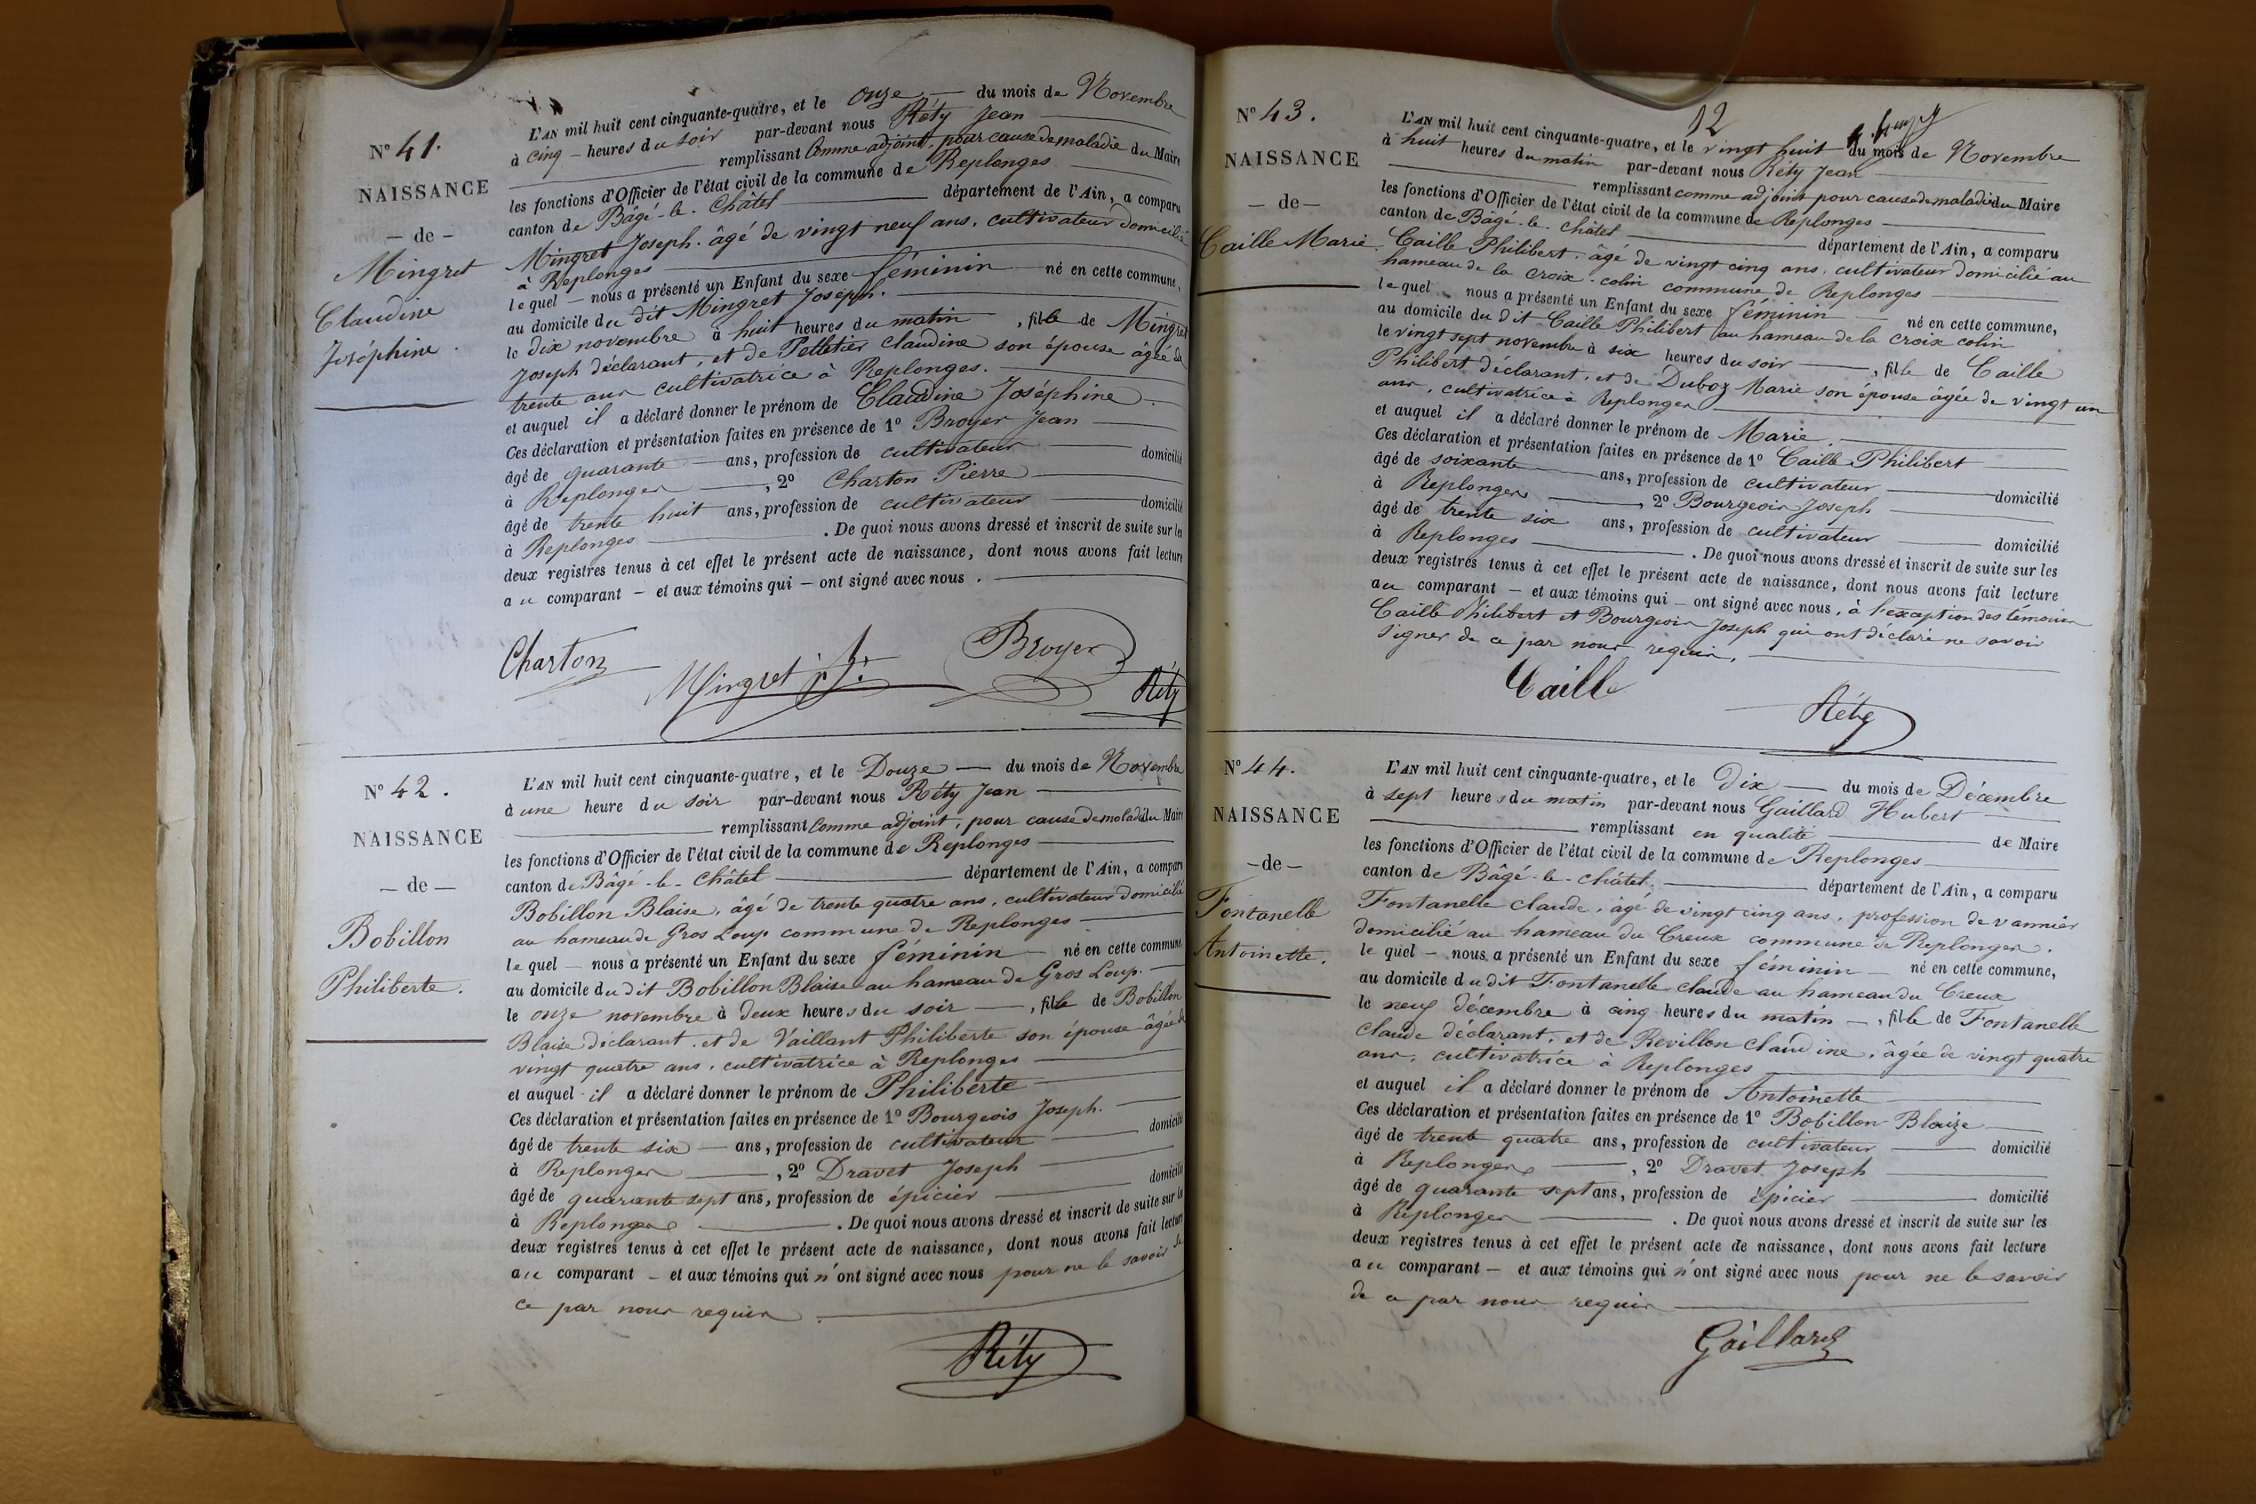 N° 41.
NAISSANCE
— de —
Mingret
Claudine
Joséphine.
L'AN mil huit cent cinquante-quatre, et le onze — du mois de Novembre
à cinq — heures du soir par-devant nous Réty Jean
remplissant Comme adjoint, pour cause de maladie du Maire
les fonctions d'Officier de l'état civil de la commune de Replonges
canton de Bâgé-le-Châtel département de l'Ain, a comparu
Mingret Joseph, âgé de vingt neuf ans, cultivateur domicilié
à Replonges
lequel — nous a présenté un Enfant du sexe féminin né en cette commune,
au domicile du dit Mingret Joseph.
le dix novembre à huit heures du matin, fille de Mingret
Joseph déclarant, et de Pelletier Claudine son épouse âgée de
trente ans cultivatrice à Replonges.
et auquel il a déclaré donner le prénom de Claudine Joséphine.
Ces déclaration et présentation faites en présence de 1° Broyer Jean
âgé de quarante ans, profession de cultivateur domicilié
à Replonges, 2° Charton Pierre
âgé de trente huit ans, profession de cultivateur domicilié
à Replonges. De quoi nous avons dressé et inscrit de suite sur les
deux registres tenus à cet effet le présent acte de naissance, dont nous avons fait lecture
au comparant — et aux témoins qui — ont signé avec nous.
Charton Mingret J. Broyer Réty
N° 42.
NAISSANCE
— de —
Bobillon
Philiberte.
L'AN mil huit cent cinquante-quatre, et le Douze — du mois de Novembre
à une heure du soir par-devant nous Réty Jean
remplissant Comme adjoint, pour cause de maladie du Maire
les fonctions d'Officier de l'état civil de la commune de Replonges
canton de Bâgé-le-Châtel département de l'Ain, a comparu
Bobillon Blaise, âgé de trente quatre ans, cultivateur domicilié
au hameau de Gros Loup commune de Replonges
lequel — nous a présenté un Enfant du sexe féminin né en cette commune
au domicile du dit Bobillon Blaise au hameau de Gros Loup.
le onze novembre à deux heures du soir —, fille de Bobillon
Blaise déclarant, et de Vaillant Philiberte son épouse âgée de
vingt quatre ans, cultivatrice à Replonges
et auquel il a déclaré donner le prénom de Philiberte
Ces déclaration et présentation faites en présence de 1° Bourgeois Joseph.
âgé de trente six — ans, profession de cultivateur domicilié
à Replonges, 2° Dravet Joseph
âgé de quarante sept ans, profession de épicier domicilié
à Replonges. De quoi nous avons dressé et inscrit de suite sur les
deux registres tenus à cet effet le présent acte de naissance, dont nous avons fait lecture
au comparant — et aux témoins qui n'ont signé avec nous pour ne le savoir de
ce par nous requis
Réty
12
N° 43.
NAISSANCE
— de —
Caille Marie.
L'AN mil huit cent cinquante-quatre, et le vingt huit du mois de Novembre
à huit heures du matin par-devant nous Réty Jean
remplissant comme adjoint pour cause de maladie du Maire
les fonctions d'Officier de l'état civil de la commune de Replonges
canton de Bâgé-le-Châtel département de l'Ain, a comparu
Caille Philibert, âgé de vingt cinq ans, cultivateur domicilié au
hameau de la croix-colin commune de Replonges
lequel nous a présenté un Enfant du sexe féminin né en cette commune,
au domicile du dit Caille Philibert au hameau de la croix colin
le vingt sept novembre à six heures du soir, fille de Caille
Philibert déclarant, et de Duboz Marie son épouse âgée de vingt un
ans, cultivatrice à Replonges
et auquel il a déclaré donner le prénom de Marie.
Ces déclaration et présentation faites en présence de 1° Caille Philibert
âgé de soixante ans, profession de cultivateur domicilié
à Replonges, 2° Bourgeois Joseph
âgé de trente six ans, profession de cultivateur domicilié
à Replonges. De quoi nous avons dressé et inscrit de suite sur les
deux registres tenus à cet effet le présent acte de naissance, dont nous avons fait lecture
au comparant — et aux témoins qui — ont signé avec nous, à l'exception des témoins
Caille Philibert et Bourgeois Joseph qui ont déclaré ne savoir
signer de ce par nous requis.
Caille Réty
N° 44.
NAISSANCE
— de —
Fontanelle
Antoinette.
L'AN mil huit cent cinquante-quatre, et le Dix — du mois de Décembre
à sept heures du matin par-devant nous Gaillard Hubert
remplissant en qualité de Maire
les fonctions d'Officier de l'état civil de la commune de Replonges
canton de Bâgé-le-châtel. département de l'Ain, a comparu
Fontanelle Claude, âgé de vingt cinq ans, profession de vannier
domicilié au hameau du Creux commune de Replonges.
lequel — nous a présenté un Enfant du sexe féminin né en cette commune,
au domicile du dit Fontanelle Claude au hameau du Creux
le neuf décembre à cinq heures du matin —, fille de Fontanelle
Claude déclarant, et de Revillon Claudine, âgée de vingt quatre
ans, cultivatrice à Replonges
et auquel il a déclaré donner le prénom de Antoinette
Ces déclaration et présentation faites en présence de 1° Bobillon Blaize
âgé de trente quatre ans, profession de cultivateur domicilié
à Replonges, 2° Dravet Joseph
âgé de quarante sept ans, profession de épicier domicilié
à Replonges. De quoi nous avons dressé et inscrit de suite sur les
deux registres tenus à cet effet le présent acte de naissance, dont nous avons fait lecture
au comparant — et aux témoins qui n'ont signé avec nous pour ne le savoir
de ce par nous requis
Gaillard